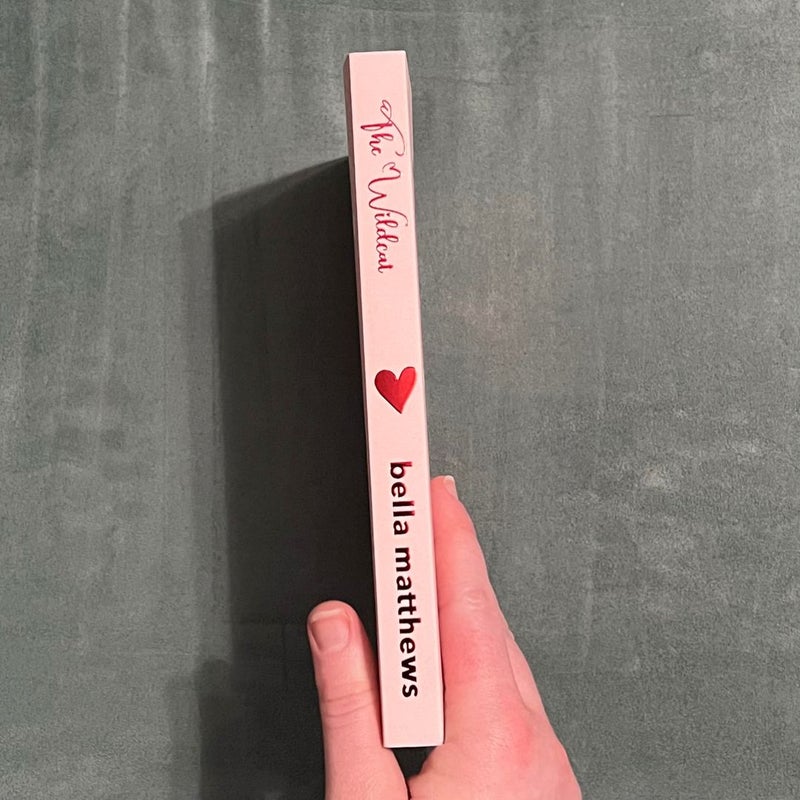 The Wildcat
bella matthews